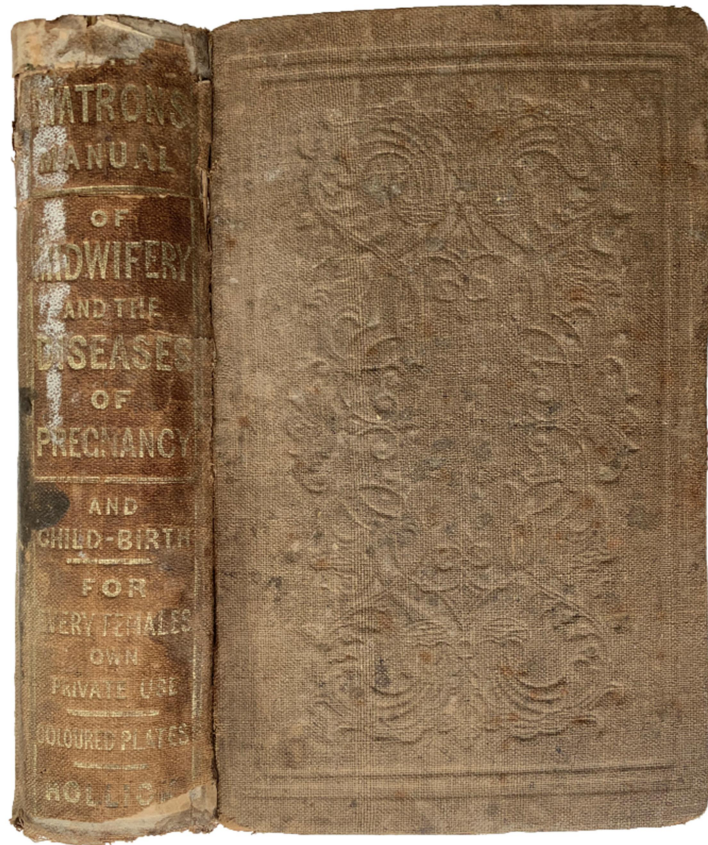 MATRONS
MANUAL
OF
MIDWIFERY
AND THE
DISEASES
OF
PREGNANCY
AND
CHILD-BIRTH
FOR
EVERY FEMALES
OWN
PRIVATE USE
COLOURED PLATES
HOLLICK